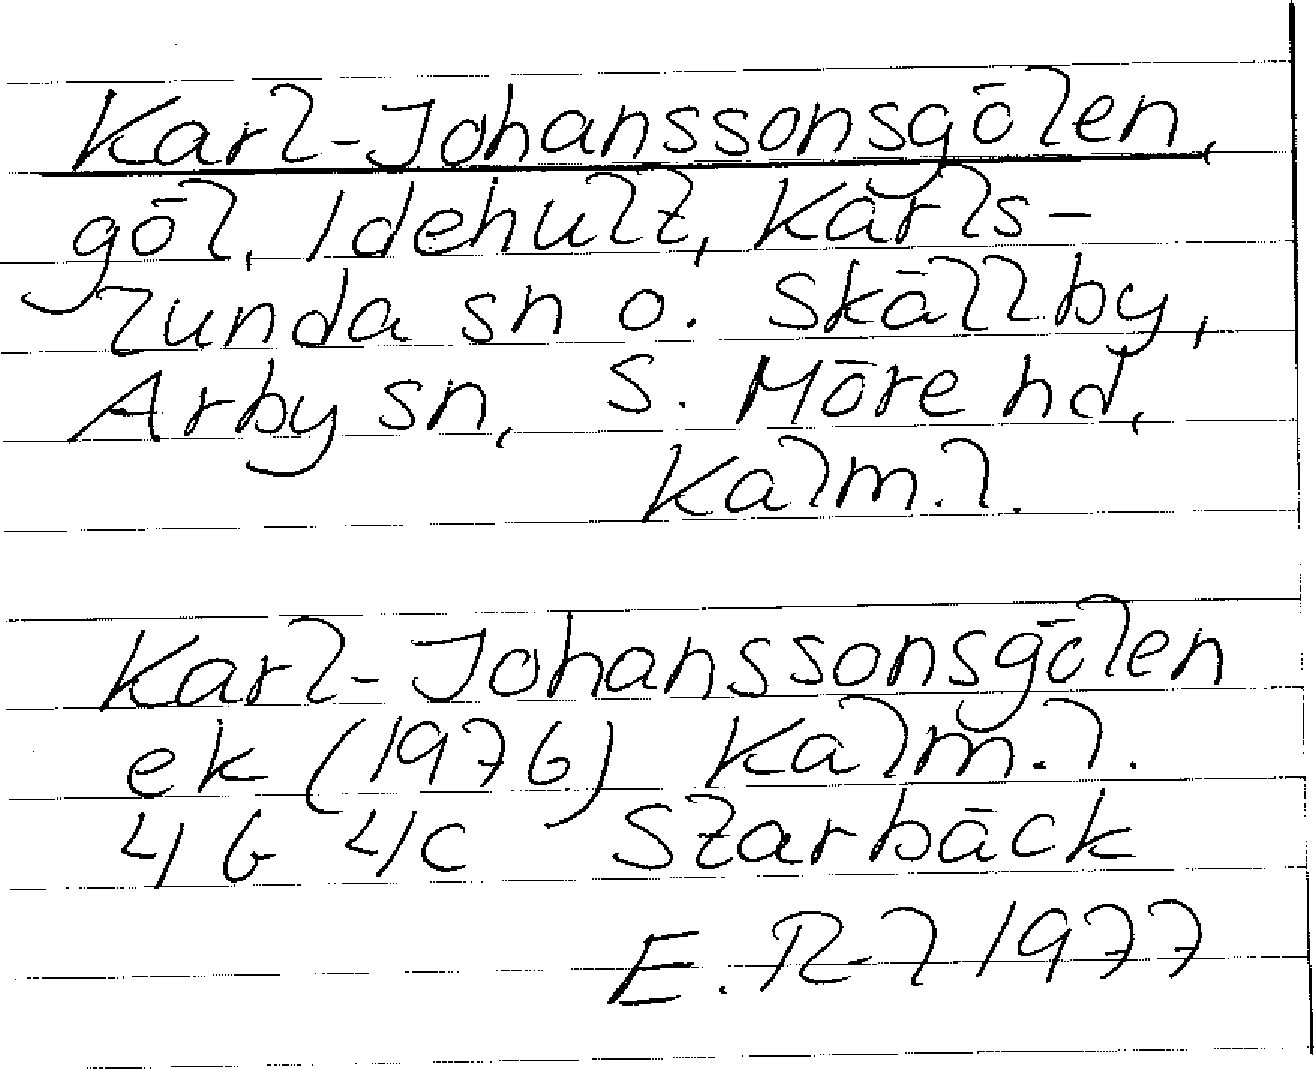 Karl-Johanssonsgölen,
göl, Idehult, Karls-
lunda sn o. Skällby,
Arby sn, S. Möre hd,
Kalm.l.
Karl-Johanssonsgölen
ek (1976) Kalm.l.
4G 4c Starbäck
E. R-l 1977